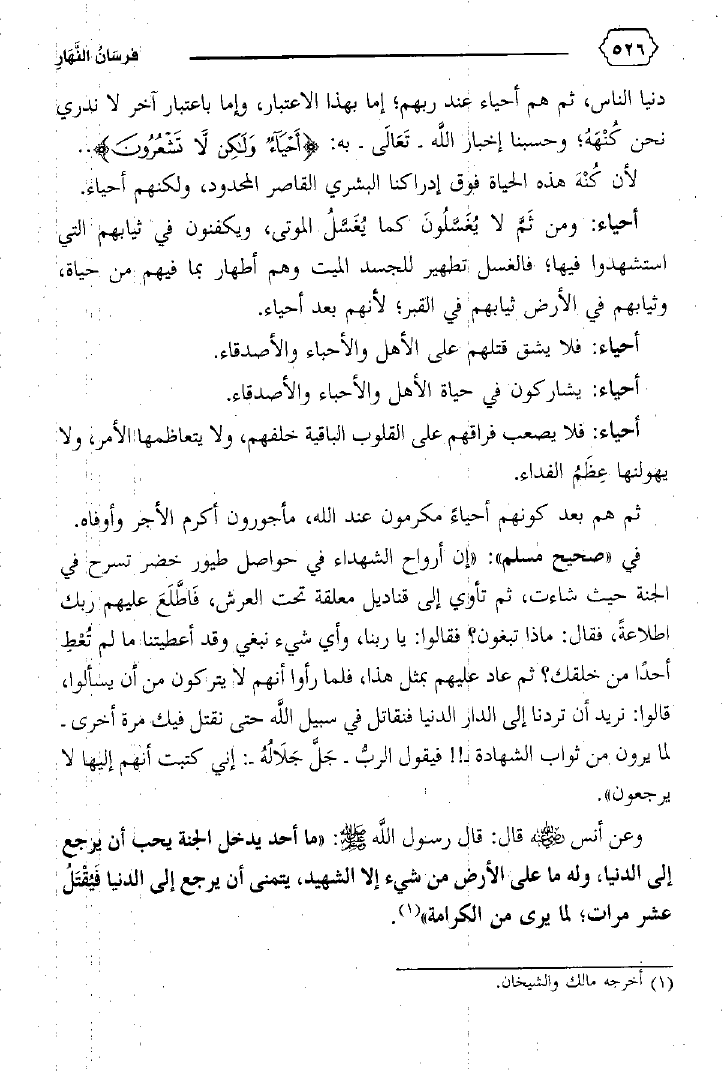 ٥٢٦
فرسَانُ النَّهَارِ
دنيا الناس، ثم هم أحياء عند ربهم؛ إما بهذا الاعتبار، وإما باعتبار آخر لا ندري
نحن كُنْهَهُ؛ وحسبنا إخبار اللَّه ـ تَعَالَى ـ به: ﴿أَحْيَآءٌ وَلَٰكِن لَّا تَشْعُرُونَ﴾..
لأن كُنْهَ هذه الحياة فوق إدراكنا البشري القاصر المحدود، ولكنهم أحياء.
أحياء: ومن ثَمَّ لا يُغَسَّلُونَ كما يُغَسَّلُ الموتى، ويكفنون في ثيابهم التي
استشهدوا فيها؛ فالغسل تطهير للجسد الميت وهم أطهار بما فيهم من حياة،
وثيابهم في الأرض ثيابهم في القبر؛ لأنهم بعد أحياء.
أحياء: فلا يشق قتلهم على الأهل والأحباء والأصدقاء.
أحياء: يشاركون في حياة الأهل والأحباء والأصدقاء.
أحياء: فلا يصعب فراقهم على القلوب الباقية خلفهم، ولا يتعاظمها الأمر، ولا
يهولنها عِظَمُ الفداء.
ثم هم بعد كونهم أحياءً مكرمون عند الله، مأجورون أكرم الأجر وأوفاه.
في «صحيح مسلم»: «إن أرواح الشهداء في حواصل طيور خضر تسرح في
الجنة حيث شاءت، ثم تأوي إلى قناديل معلقة تحت العرش، فَاطَّلَعَ عليهم ربك
اطلاعةً، فقال: ماذا تبغون؟ فقالوا: يا ربنا، وأي شيء نبغي وقد أعطيتنا ما لم تُعْطِ
أحدًا من خلقك؟ ثم عاد عليهم بمثل هذا، فلما رأوا أنهم لا يتركون من أن يسألوا،
قالوا: نريد أن تردنا إلى الدار الدنيا فنقاتل في سبيل اللَّه حتى نقتل فيك مرة أخرى ـ
لما يرون من ثواب الشهادة ـ!! فيقول الربُّ ـ جَلَّ جَلَالُهُ ـ: إني كتبت أنهم إليها لا
يرجعون».
وعن أنس رضي الله عنه قال: قال رسول اللَّه ﷺ: «ما أحد يدخل الجنة يحب أن يرجع
إلى الدنيا، وله ما على الأرض من شيء إلا الشهيد، يتمنى أن يرجع إلى الدنيا فَيُقْتَلُ
عشر مرات؛ لما يرى من الكرامة»(١).
(١) أخرجه مالك والشيخان.